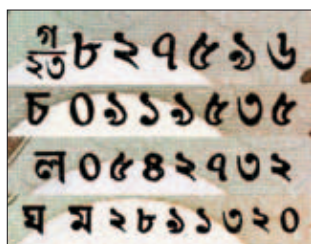 গ/২৩ ৮২৭৫৯৬
চ ০৯১৯৫৩৫
ল ০৫৪২৭৩২
ঘ ম ২৮৯১৩২০